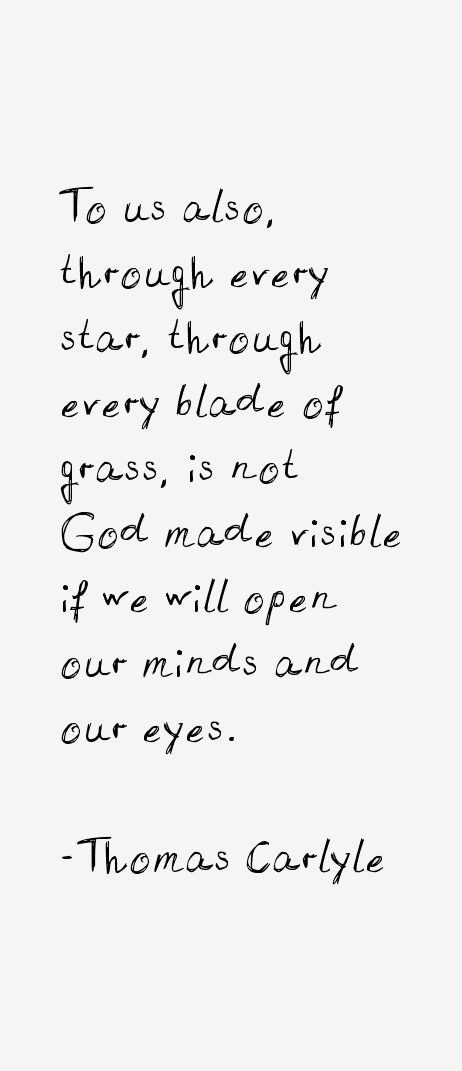 To us also,
through every
star, through
every blade of
grass, is not
God made visible
if we will open
our minds and
our eyes.
-Thomas Carlyle